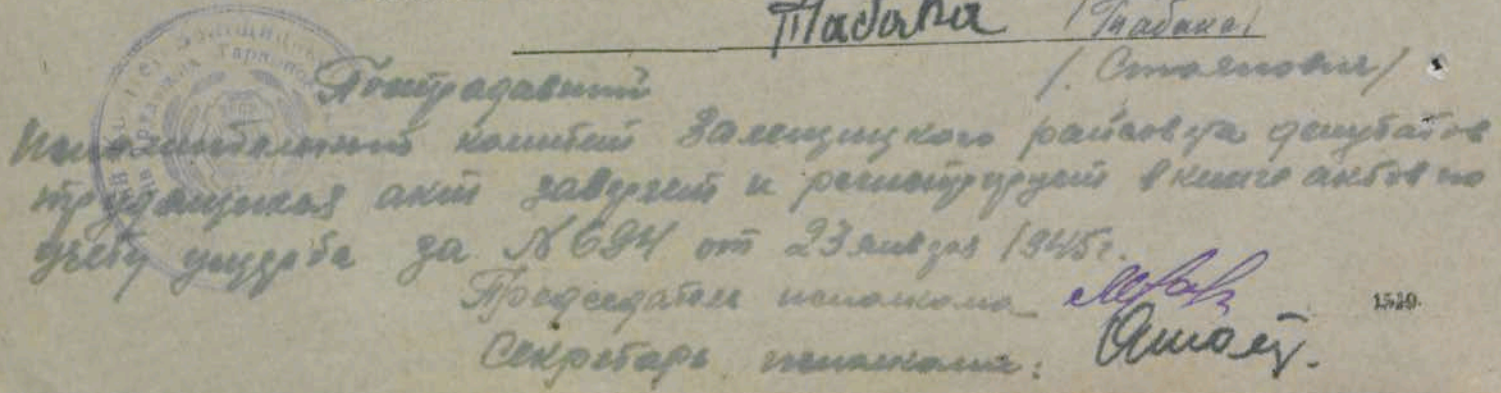 Табака /Табака/
Пострадавший /Стоянович/
Исполнительный комитет Залещицкого райсовета депутатов
трудящихся акт заверяет и регистрирует в книге актов по
учету ущерба за №694 от 23 января 1945 г.
Председатель исполкома
Секретарь исполкома: